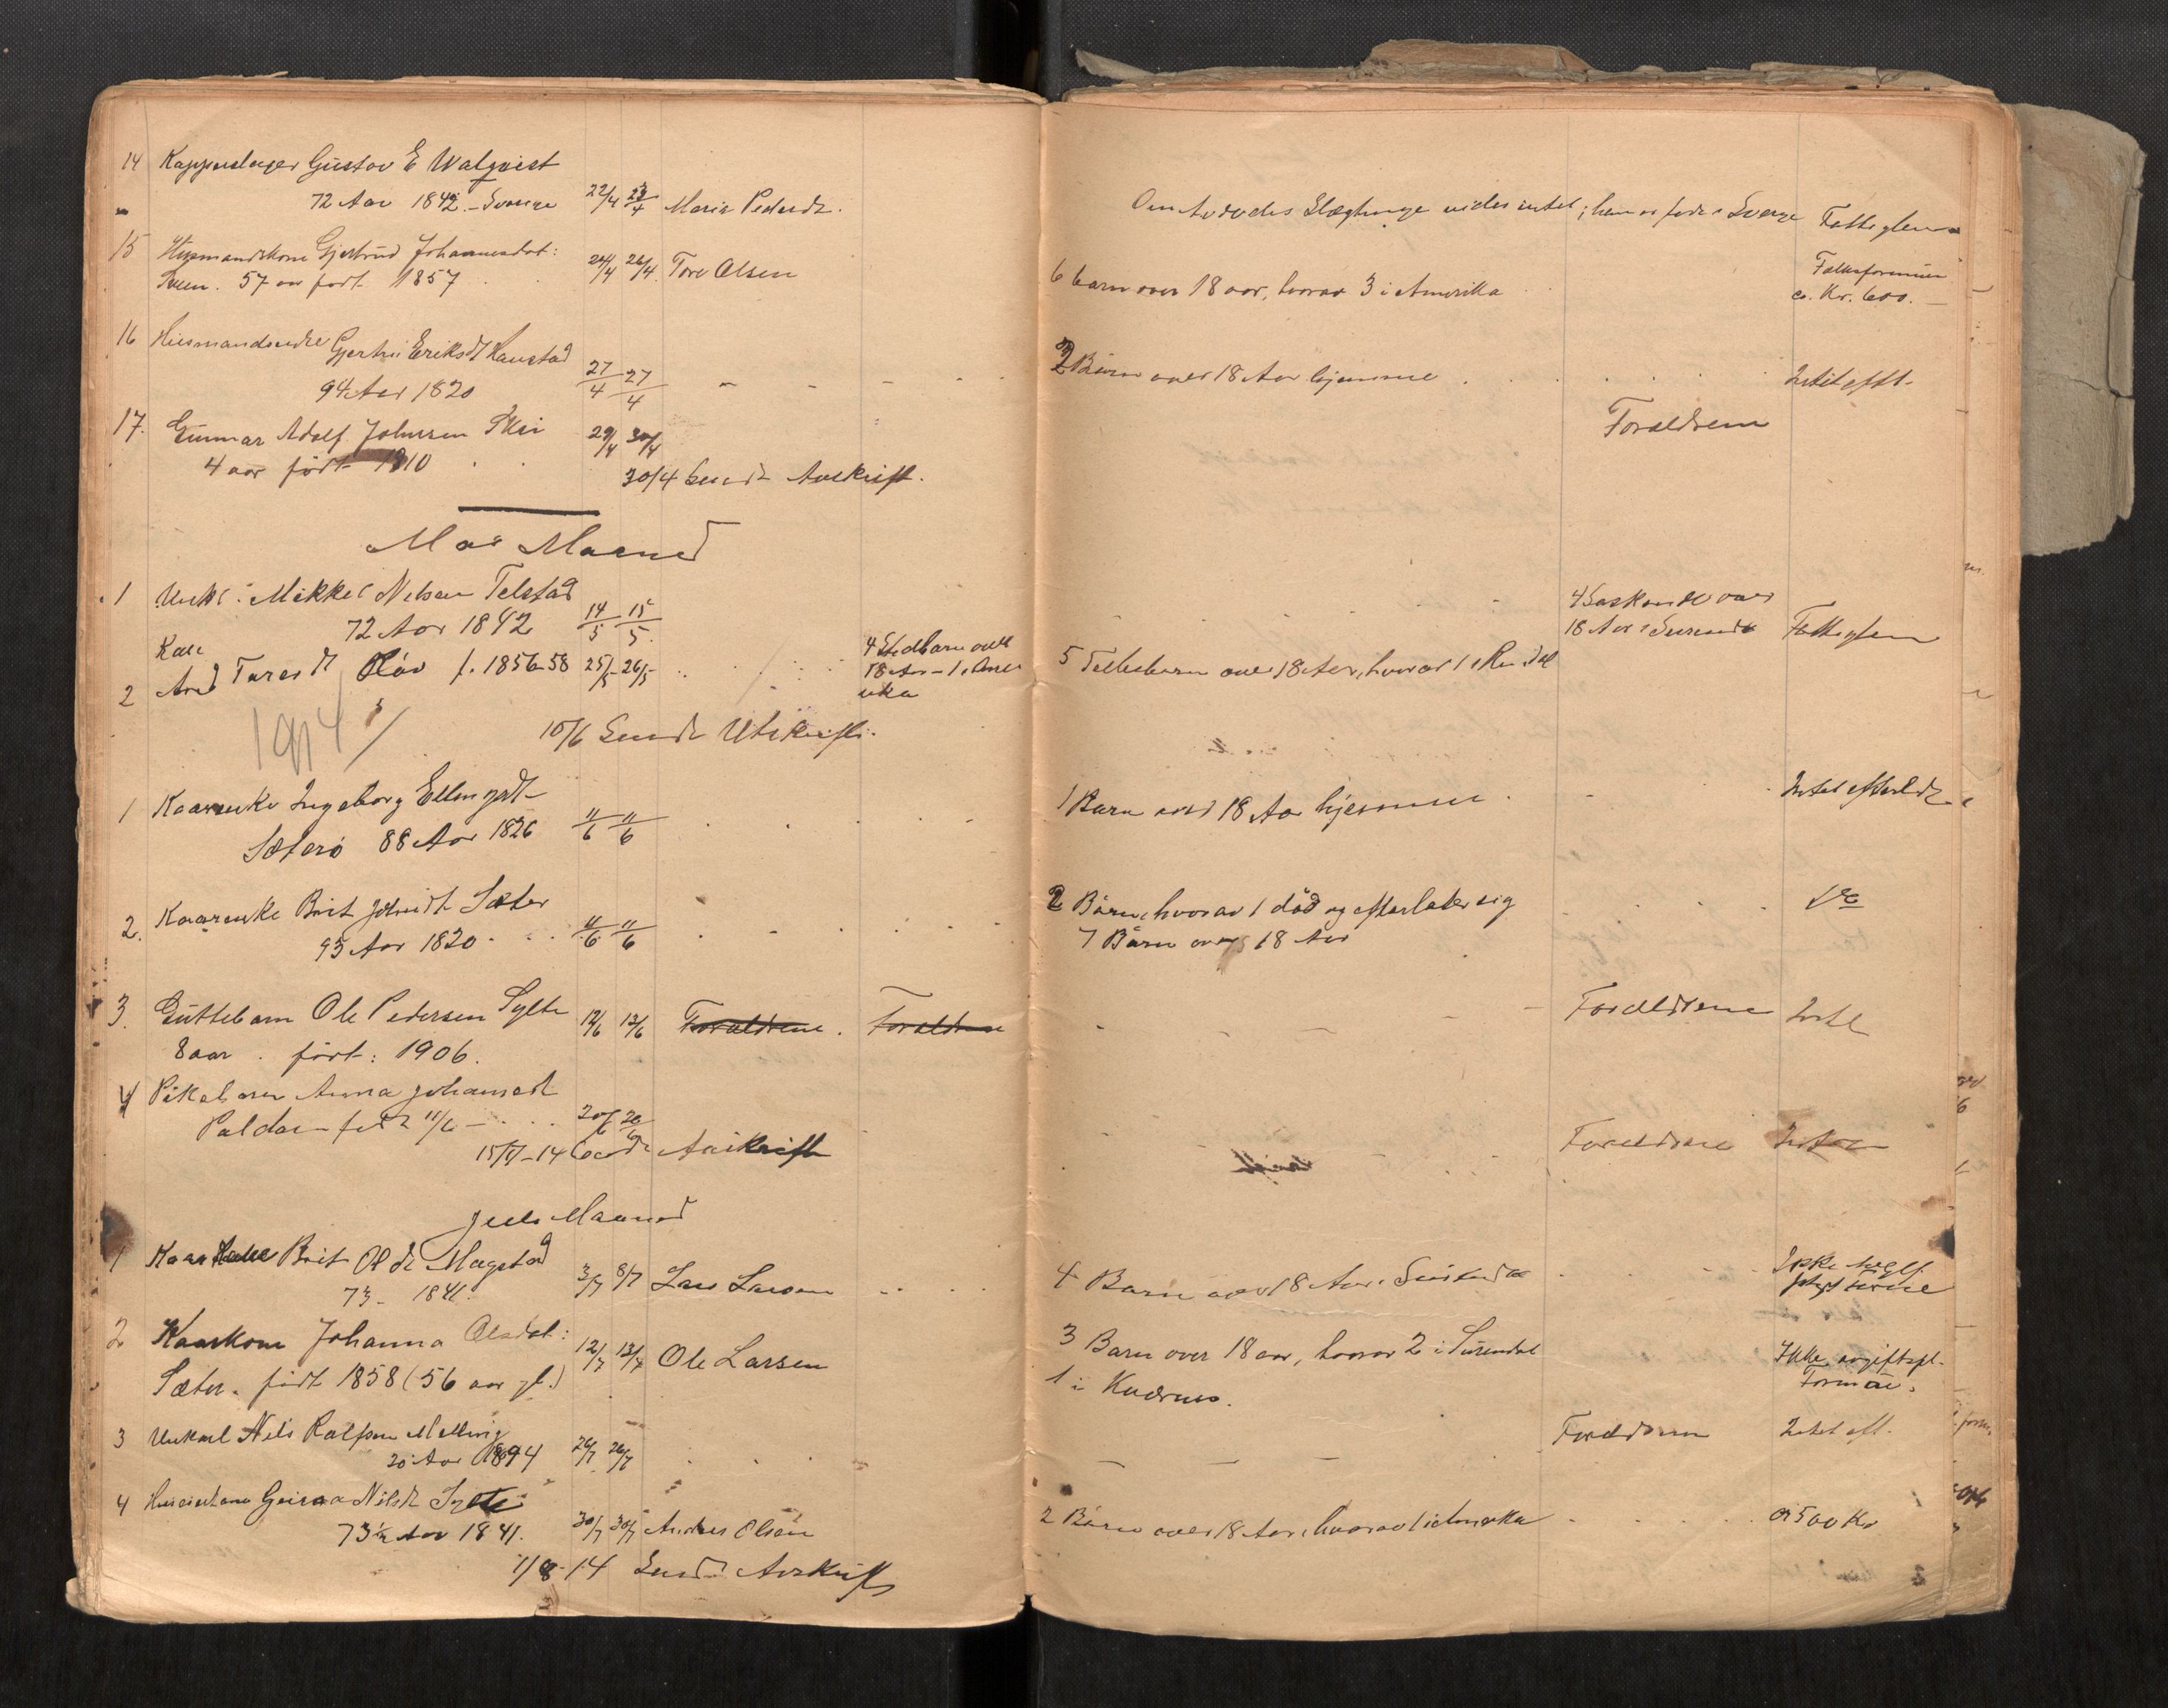 14 Kopperslager Gustav E Walqvist
72 Aar 1842 - Sverige 22/4 23/4 Marie Pedersdt.
Om Avdødes Slægtninge vides intet; han er født i Sverge Fattiglem
15 Husmandskone Gjertrud Johannesdat:
Sveen. 57 aar født 1857 24/4 26/4 Tore Olsen
6 barn over 18 aar, hvorav 3 i Amerika
Fællesformue
ca. Kr. 600. -
16 Husmandsenke Gjertru Eriksdt Haustad
94 Aar 1820 27/4 27/4
2 Børn over 18 Aar hjemme Intet eft.
17. Gunnar Adolf Johnsen Ski 29/4 30/4
4 aar født 1910
Forældrene
30/4 Sendt Avskrift.
Mai Maaned
1 Unkl: Mikkel Nilsen Telstad
72 Aar 1842 14/5 15/5
4 Søskende over
18 Aar i Surendal Fattiglem
Kaar
2 Arnt Toresdt Bløv f. 1856-58 25/5 26/5
4 Stedbarn over
18 Aar - 1 i Ame
rika
5 Fellesbarn over 18 Aar, hvorav 1 i Rindal
1914
10/6 Sendt Utskrift.
1 Kaarenke Ingeborg Ellingsdt
Sæterø 88 Aar 1826 11/6 11/6
1 Barn over 18 Aar hjemme Intet efterladt
2. Kaarenke Brit Johnsdt Sæter
93 Aar 1820 11/6 11/6
2 Børn, hvorav 1 død og efterlater sig
7 Børn over 18 Aar
do
3. Guttebarn Ole Pedersen Sylte 12/6 13/6 Forældrene. Forældrene
8 aar. født: 1906.
Forældrene Intet
4 Pikebarn Anna Johansdt
Paldan født 11/6 - 20/6 20/6
Forældrene Intet
15/7-14 Sendt Avskrift
Juli Maaned
1 Kaarkone Brit Olsdt Mogstad
73 - 1841. 3/7 8/7 Lars Larsen
4 Barn over 18 Aar i Surendal
2 Kaarkone Johanna Olsdat:
Sæter. født 1858 (56 aar gl.) 12/7 13/7 Ole Larsen
3 Barn over 18 aar, hvorav 2 i Surendal
1 i Kværnes.
Ikke avgiftspl.
Formue.
3 Unkarl Nils Rolfsen Melling
20 Aar 1894 26/7 26/7
Forældrene Intet eft.
4 Guruna Nilsdt Sylte
73½ Aar 1841. 30/7 30/7 Anders Olsen
2 Børn over 18 Aar, hvorav 1 i Amerika 500 Kr
1/8-14 Sendt Avskrift